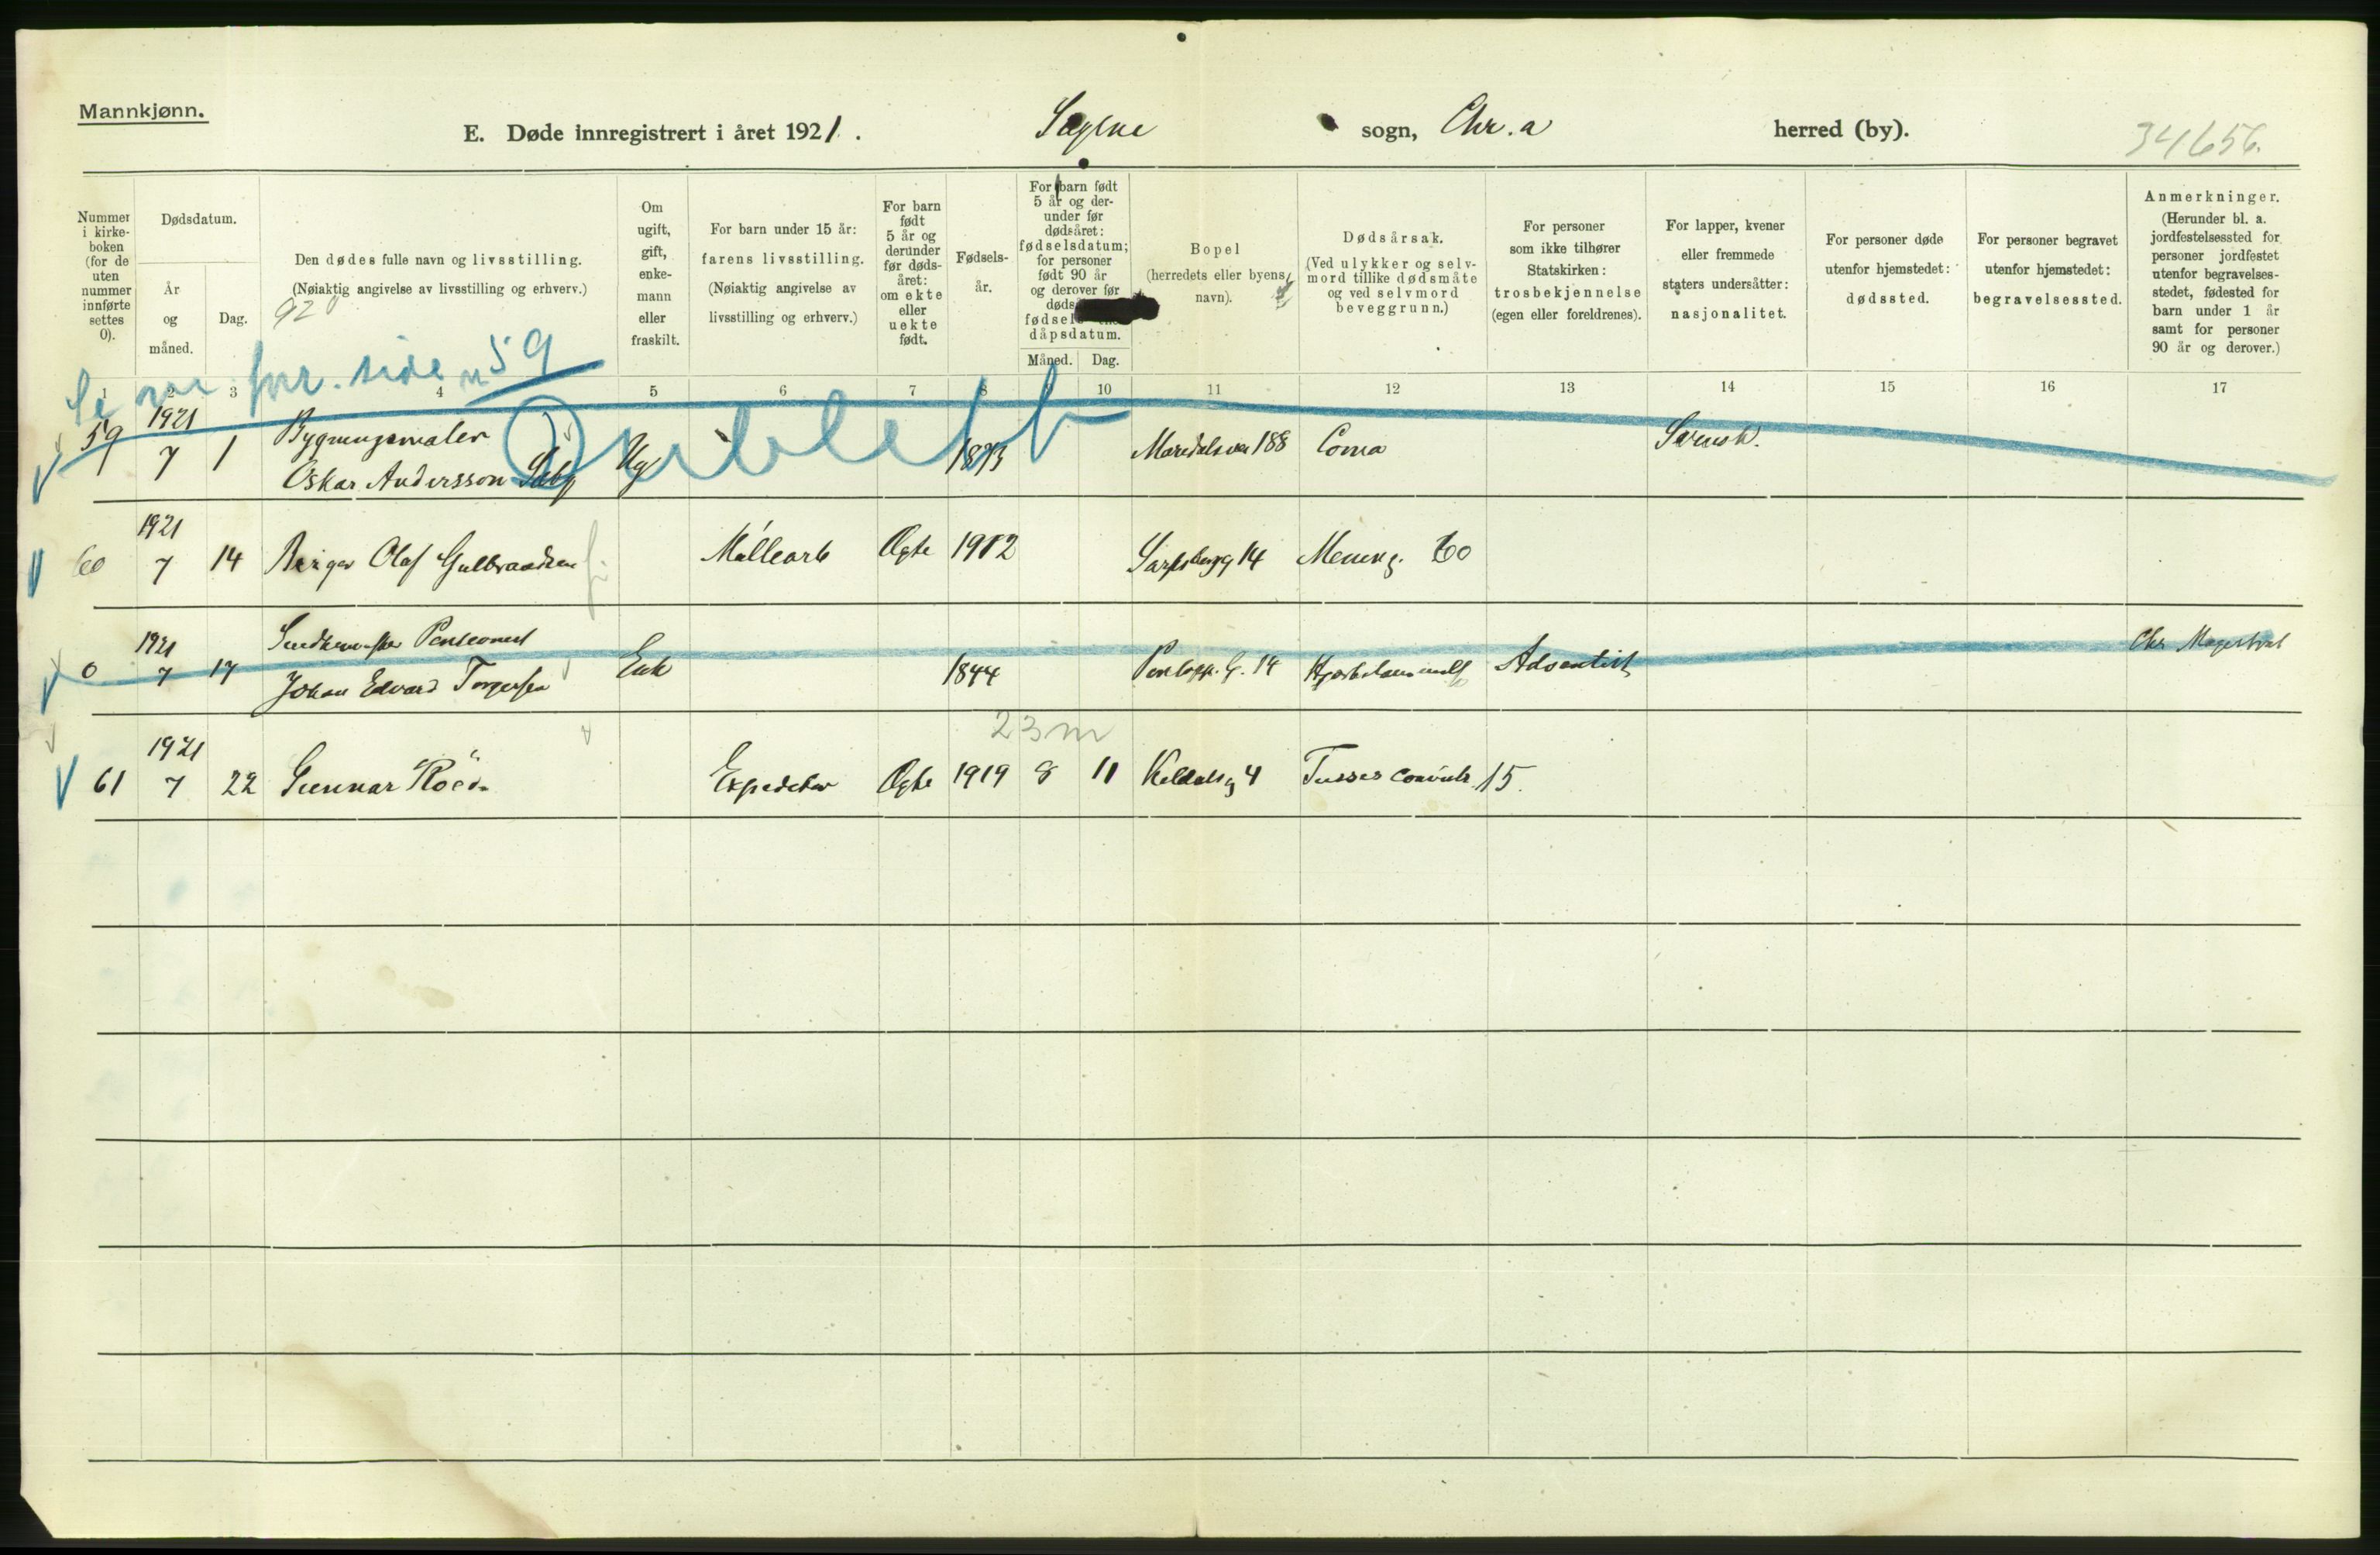 Mannkjønn.
E. Døde innregistrert i året 1921. Sagene sogn, Chr.a herred (by).
34656.
Nummer i kirkeboken (for de uten nummer innførte settes 0).
Dødsdatum.
År og måned.
Dag.
Den dødes fulle navn og livsstilling.
(Nøiaktig angivelse av livsstilling og erhverv.)
920
Om ugift, gift, enkemann eller fraskilt.
For barn under 15 år:
farens livsstilling.
(Nøiaktig angivelse av livsstilling og erhverv.)
For barn født 5 år og derunder før dødsåret: om ekte eller uekte født.
Fødselsår.
For barn født 5 år og derunder før dødsåret: fødselsdatum; for personer født 90 år og derover før
dåpsdatum.
Måned. Dag.
Bopel
(herredets eller byens navn).
Dødsårsak.
(Ved ulykker og selvmord tillike dødsmåte og ved selvmord beveggrunn.)
For personer som ikke tilhører Statskirken:
trosbekjennelse
(egen eller foreldrenes).
For lapper, kvener eller fremmede staters undersåtter:
nasjonalitet.
For personer døde utenfor hjemstedet:
dødssted.
For personer begravet utenfor hjemstedet:
begravelsessted.
Anmerkninger.
(Herunder bl. a. jordfestelsessted for personer jordfestet utenfor begravelsesstedet, fødested for barn under 1 år samt for personer 90 år og derover.)
Se forr. side 59
1 2 3 4 5 6 7 8 10 11 12 13 14 15 16 17
Dublett
59 1921 7 1 Bygningsmaler
Oskar Andersson Ug 1873 Maridalsvei 188 Coma Svensk.
60 1921 7 14 Birger Olaf Gulbrandsen Møllearb Ægte 1912 Sarpsborgg 14 Mening. 60
0 1921 7 17 Pensionist
Johan Edvard Torgersen Enk 1844 14 Adventist Chr Magistrat
23 m
61 1921 7 22 Gunnar Röed Expeditør Ægte 1919 8 11 4 Tusses convuls. 15.